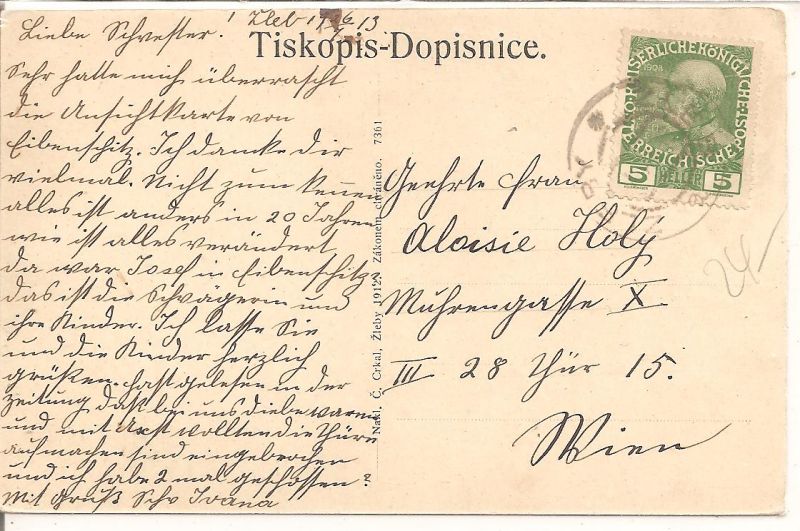 Žleb 17/6 13
Liebe Schwester!
Tiskopis-Dopisnice.
Sehr hatte mich überrascht
die Ansichtkarte von
Eibenschitz. Ich damke dir
vielmal. Nicht zum kennen
alles ist anders in 20 Jahren
wie ist alles verändert
da war Josef in Eibenschitz
das ist die Schvägerin und
ihre Kinder. Ich lasse Sie
und die Kinder herzlich
grüßen. hast gelesen in der
zeitung daß bei uns diebe waren
und mit Axst wollten die Thüre
aufmachen sind eingebrochen
und ich habe 2 mal geschossen?
Mit gruß Schv Ivana
Nakl. Č. Crkal, Žleby 1912. Zákonem chráněno. 7361
KAISERLICHE KÖNIGLICHE
ÖSTERREICHISCHE POST
1908
5 HELLER 5
Geehrte Frau
Aloisie Holý
Muhrengasse X
III 28 Thür 15.
Wien
24